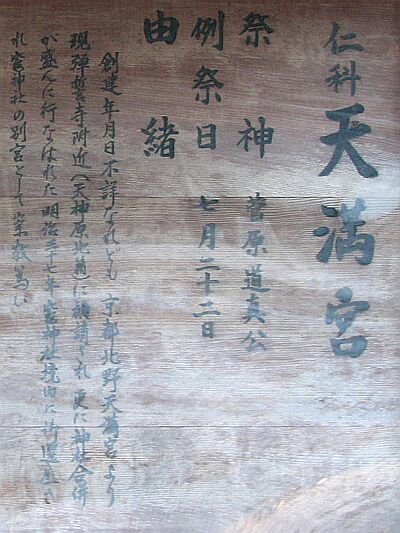 仁科天満宮
祭神 菅原道真公
例祭日 七月二十二日
由緒
創建年月日不詳なれども京都北野天満宮より
現弾誓寺附近(天神原北原)に勧請され更に神社合併
が盛んに行なはれた明治三十七年宮神社境内に御遷座さ
れ宮神社の別宮として崇敬篤い